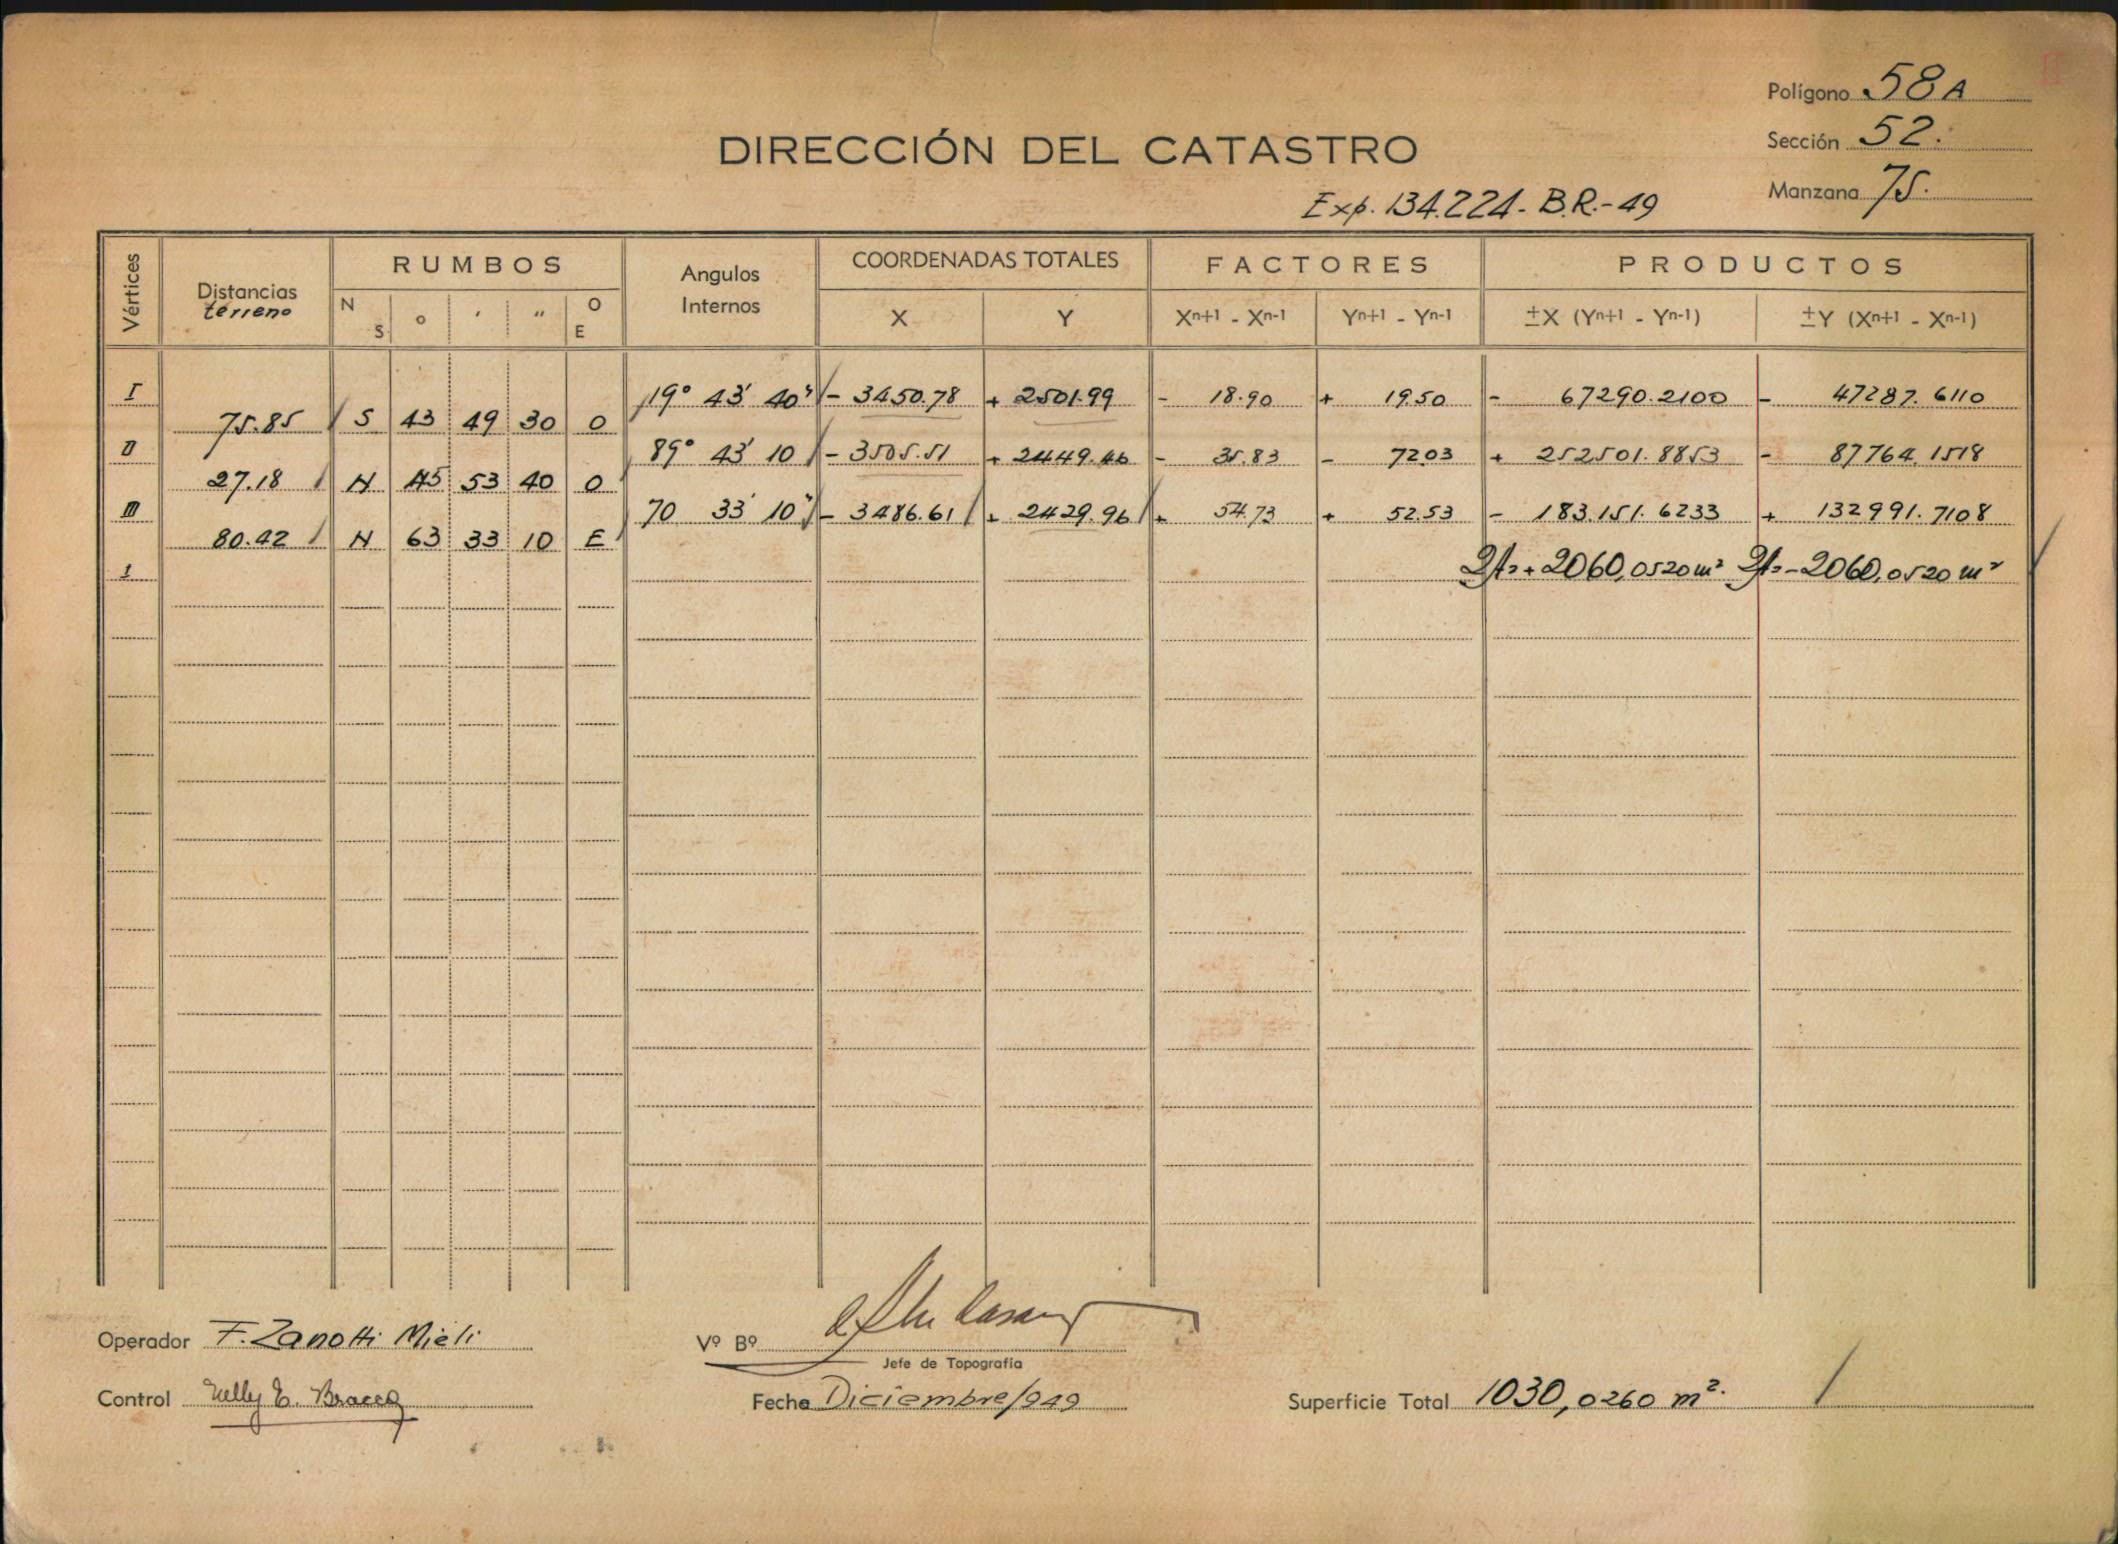 Polígono 58A
Sección 52.
Manzana 75.
DIRECCIÓN DEL CATASTRO
Exp. 134.224-B.R.-49
Vértices Distancias terreno RUMBOS Angulos Internos COORDENADAS TOTALES FACTORES PRODUCTOS
N S ° ' " O E X Y Xn+1 - Xn-1 Yn+1 - Yn-1 ±X (Yn+1 - Yn-1) ±Y (Xn+1 - Xn-1)
I 19° 43' 40" - 3450.78 + 2501.99 - 18.90 + 19.50 - 67290.2100 - 47287.6110
75.85 S 43 49 30 O
II 89° 43' 10 - 3505.51 + 2449.46 - 35.83 - 72.03 + 252501.8853 - 87764.1518
27.18 N 45 53 40 O
III 70 33' 10" - 3486.61 + 2429.96 + 54.73 + 52.53 - 183.151.6233 + 132991.7108
80.42 N 63 33 10 E
I 2A=+2060,0520 m² 2A=-2060,0520 m²
Operador F. Zanotti Mieli
Vº Bº
Jefe de Topografía
Control Nelly E. Bracco
Fecha Diciembre/949
Superficie Total 1030,0260 m².